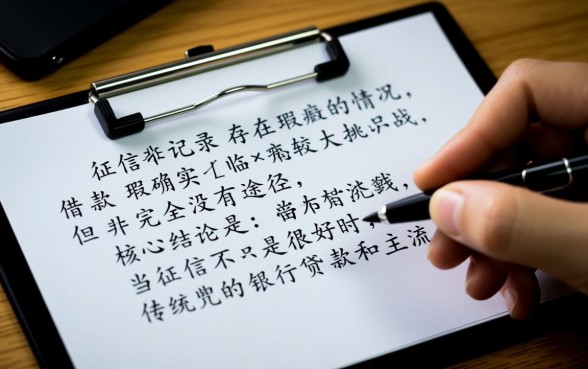 征信非记录 存在瑕疵的情况,
借款 瑕确实 临× 较大挑 战.
但非完全没有途径,
核心结论是:
当征信不只是很好时,
传统 的银行贷款和主流